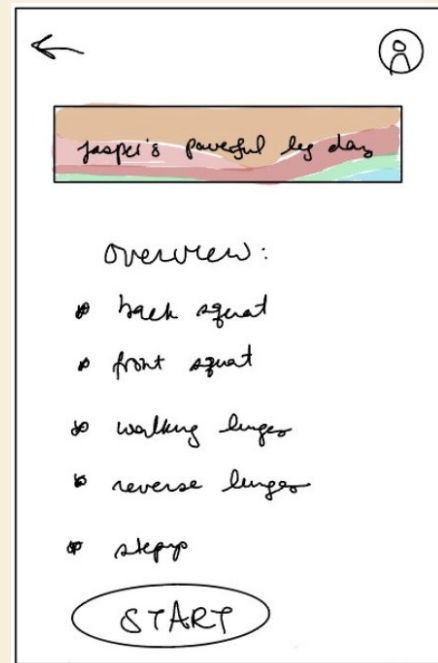 jasper's powerful leg day
overview:
back squat
front squat
walking lunges
reverse lunges
stepup
START